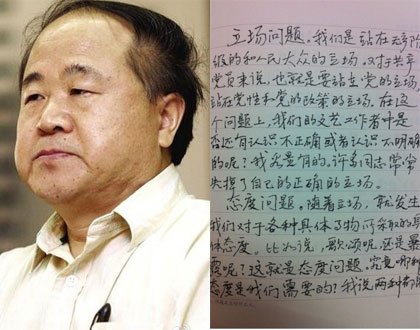 立场问题。我们是站在无产阶
级的和人民大众的立场。对于共产
党员来说，也就是要站在党的立场，
站在党性和党的政策的立场。在这
个问题上，我们的文艺工作者中是
否还有认识不正确或者认识不明确
的呢？我看是有的。许多同志常常
失掉了自己的正确的立场。
态度问题。随着立场，就发生
我们对于各种具体事物所采取的具
体态度。比如说，歌颂呢，还是暴
露呢？这就是态度问题。究竟哪种
态度是我们需要的？我说两种都